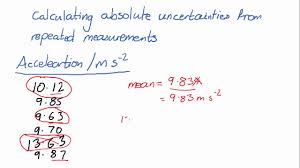 Calculating absolute uncertainties from
repeated measurements
Acceleartion / m s⁻²
10.12
9.85
9.63
9.70
13.63
9.87
mean = 9.83
= 9.83 m s⁻²